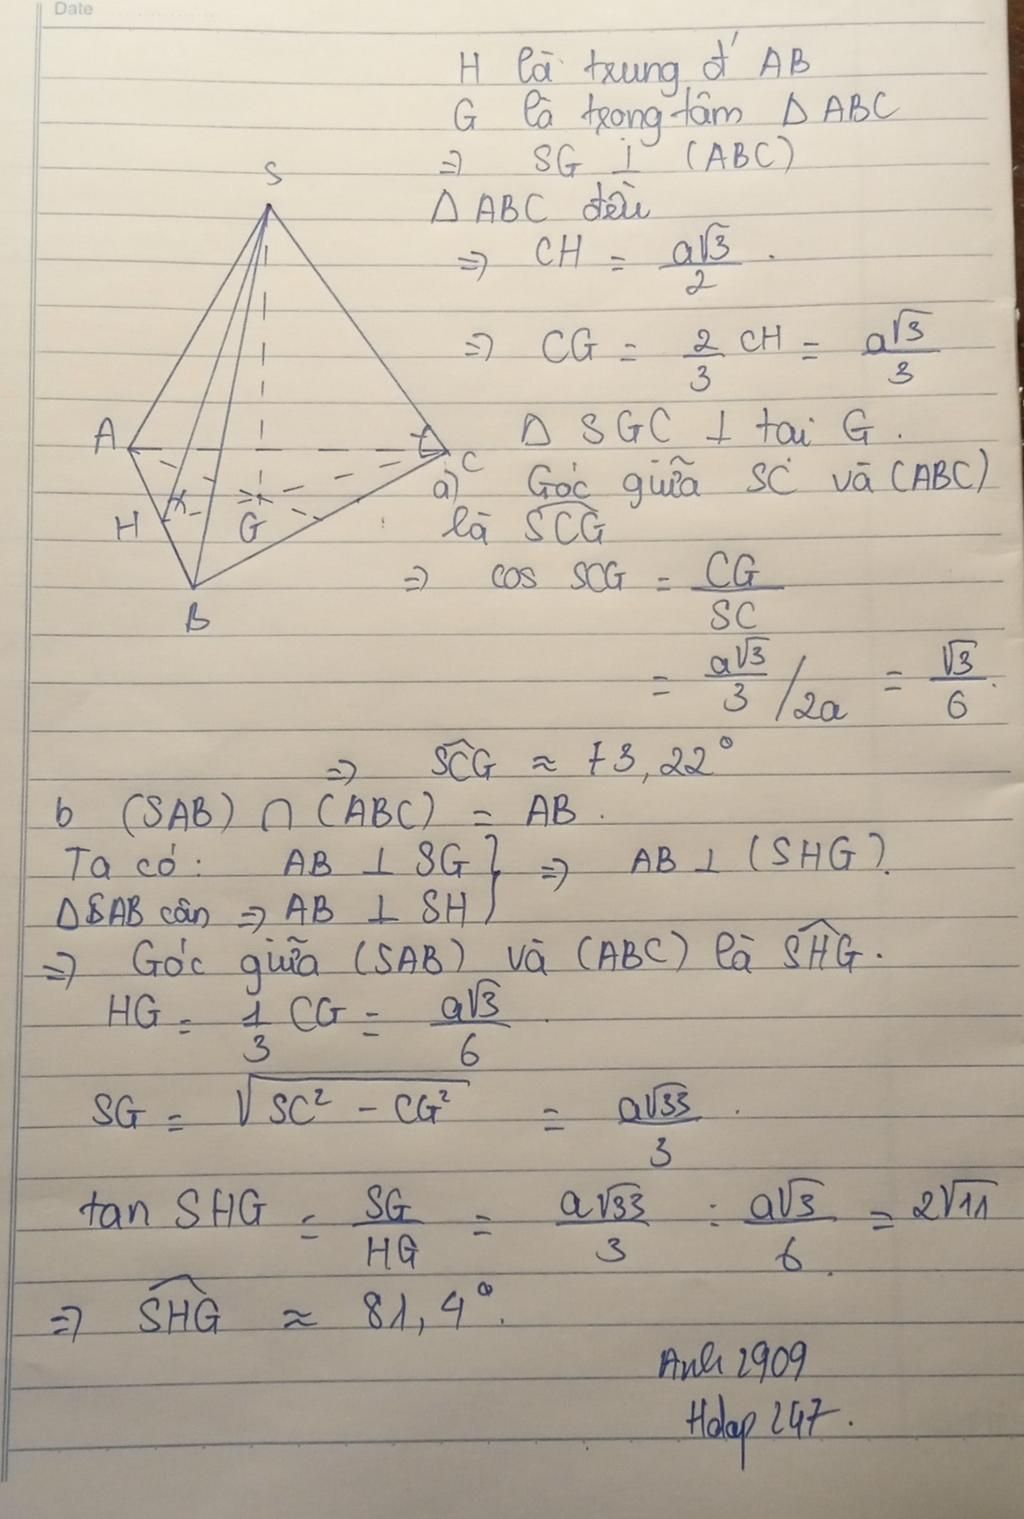 Date
H là trung đ' AB
G là trọng tâm Δ ABC
=> SG ⊥ (ABC)
Δ ABC đều
=> CH = a√3/2 .
=> CG = 2/3 CH = a√3/3
Δ SGC ⊥ tại G.
a) Góc giữa SC và (ABC)
là SCG
=> cos SCG = CG/SC
= a√3/3 / 2a = √3/6 .
=> SCG ≈ 73,22°
b (SAB) ∩ (ABC) = AB.
Ta có: AB ⊥ SG } => AB ⊥ (SHG).
ΔSAB cân => AB ⊥ SH
=> Góc giữa (SAB) và (ABC) là SHG.
HG = 1/3 CG = a√3/6 .
SG = √SC² - CG² = a√33/3 .
tan SHG = SG/HG = a√33/3 : a√3/6 = 2√11
=> SHG ≈ 81,4°.
Anh 2909
Hdap 247.
S
A
C
H
G
B